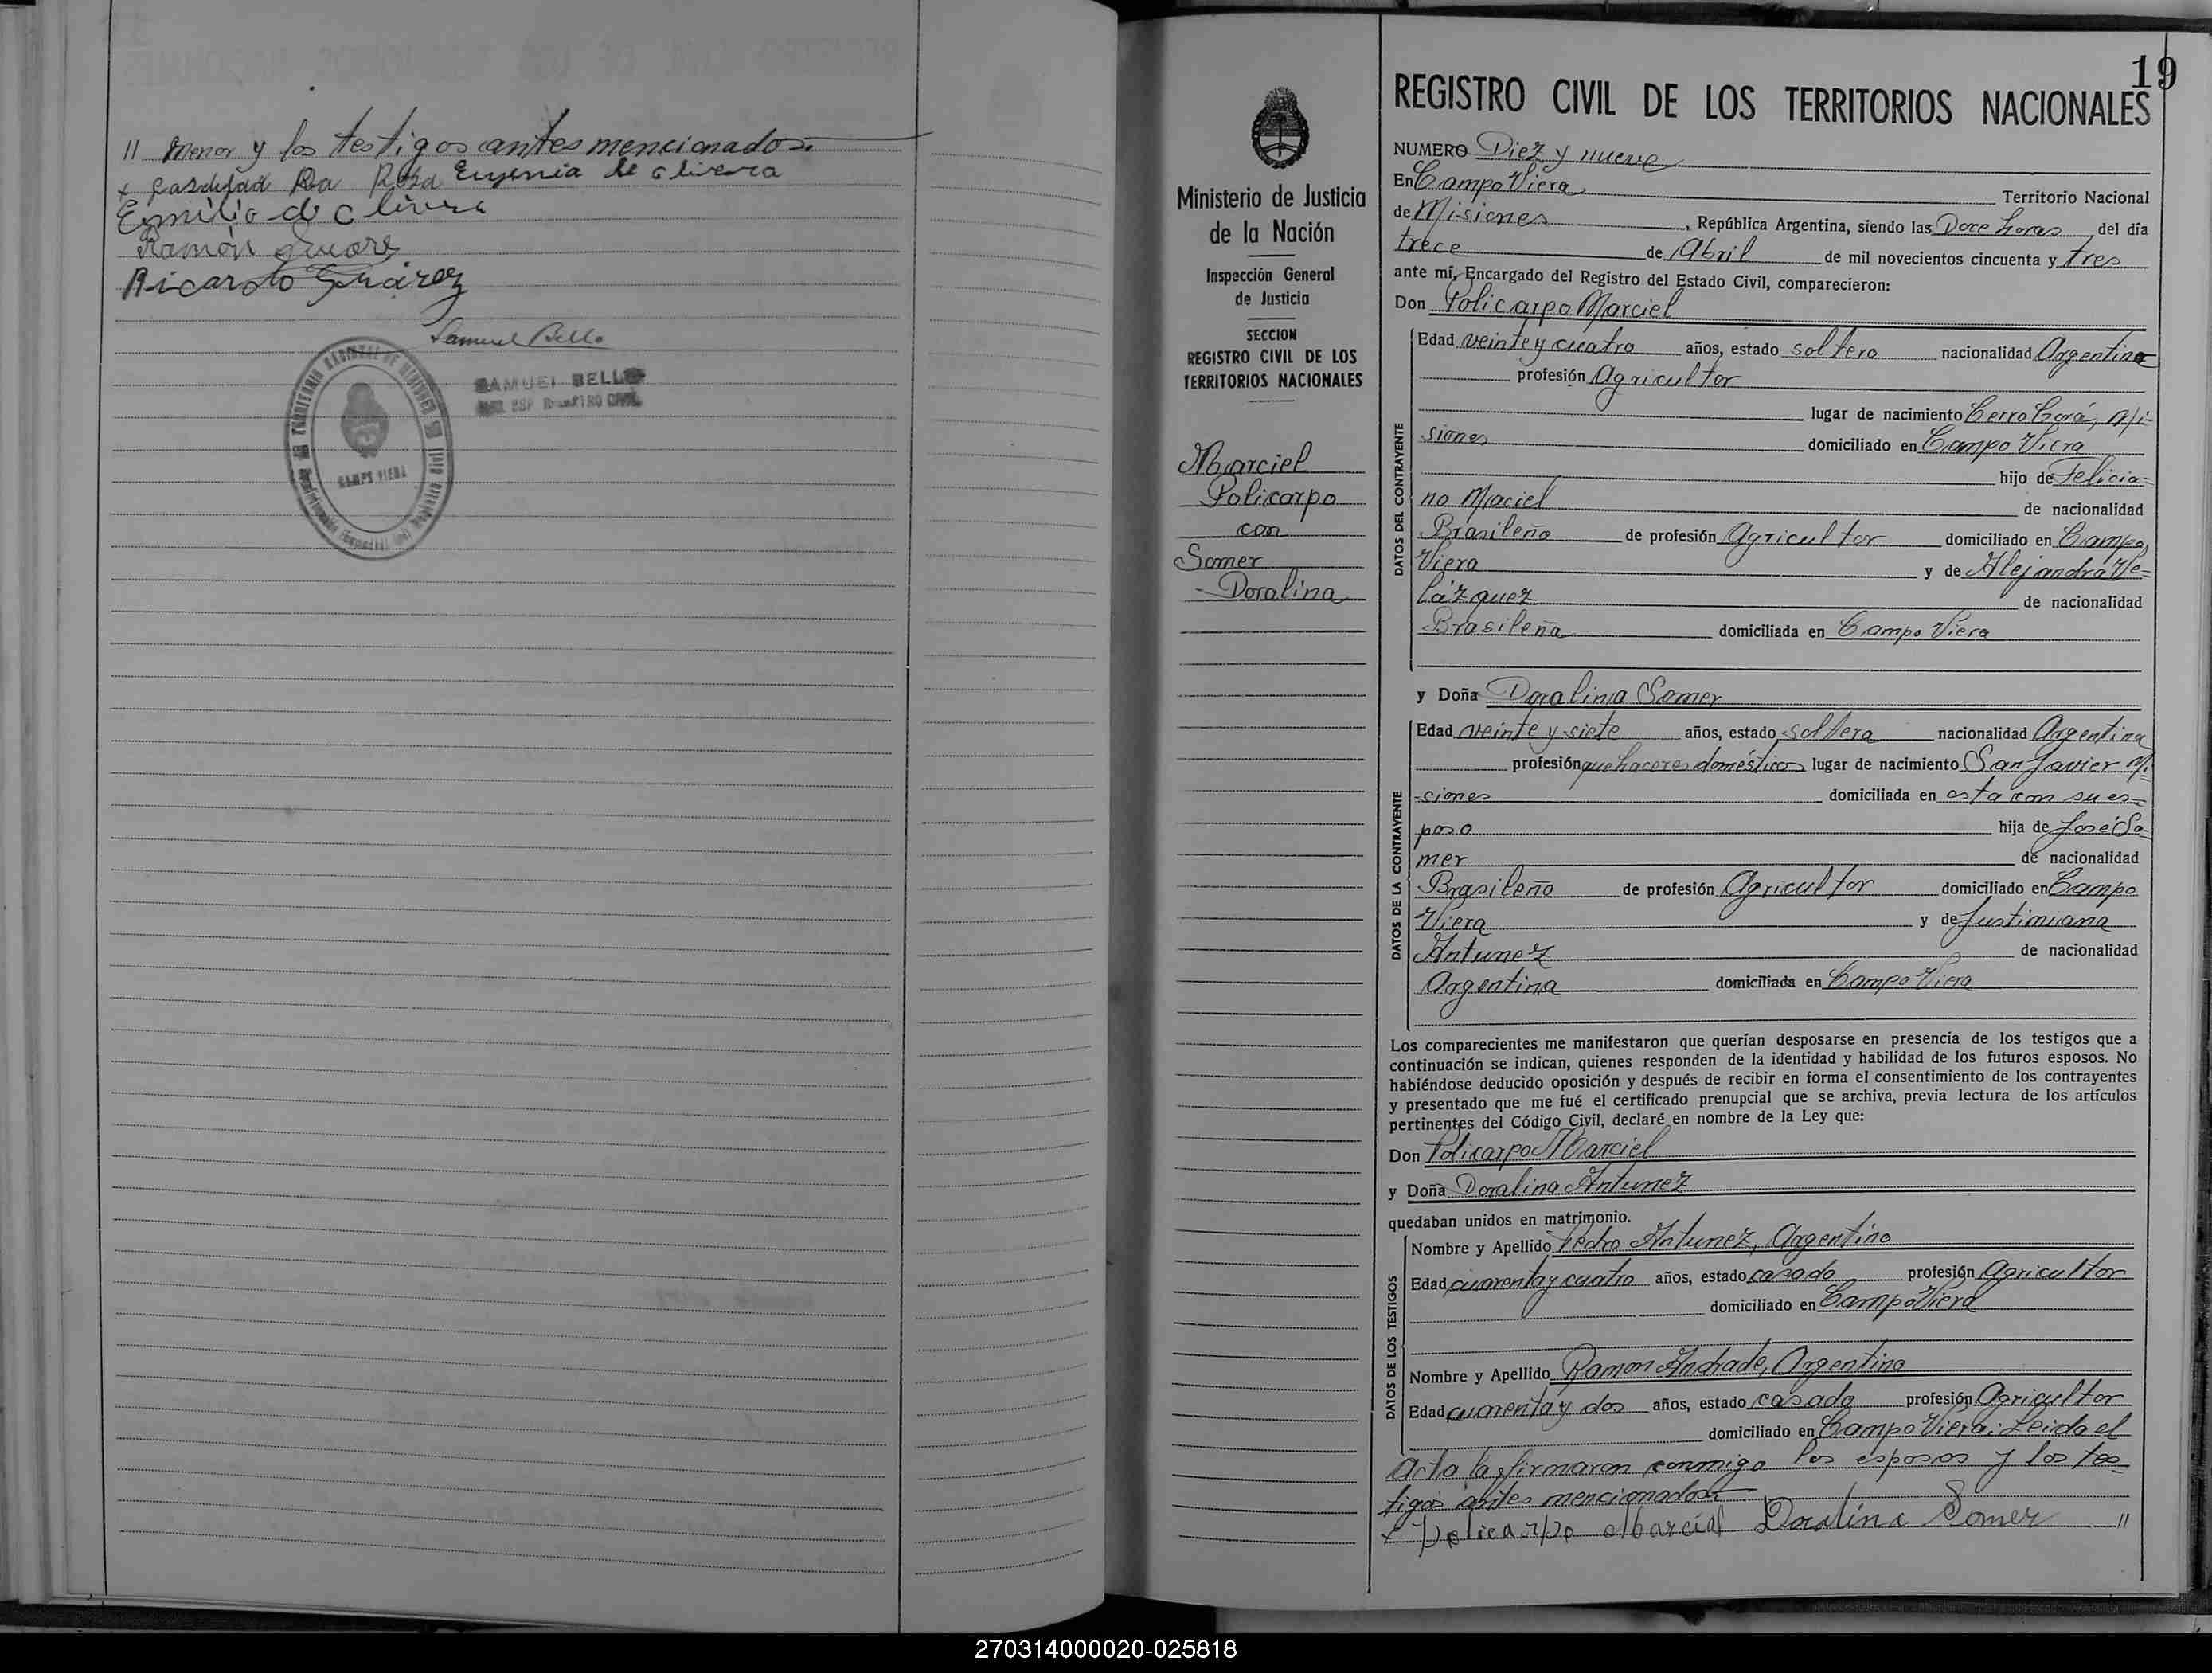 // menor y los testigos antes mencionados.
Rosa Eugenia de olivera
Emilio de olivera
Ramón
Ricardo Suárez
Samuel Bello
SAMUEL BELLO
CAMPO VIERA
19
REGISTRO CIVIL DE LOS TERRITORIOS NACIONALES
Ministerio de Justicia
de la Nación
Inspección General
de Justicia
SECCION
REGISTRO CIVIL DE LOS
TERRITORIOS NACIONALES
Marciel
Policarpo
con
Somer
Doralina
NUMERO Diez y nueve
En Campo Viera Territorio Nacional
de Misiones, República Argentina, siendo las Doce horas del día
trece de Abril de mil novecientos cincuenta y tres
ante mí, Encargado del Registro del Estado Civil, comparecieron:
Don Policarpo Marciel
DATOS DEL CONTRAYENTE
Edad veinte y cuatro años, estado soltero nacionalidad Argentina
profesión Agricultor
lugar de nacimiento Cerro Corá, Mi-
siones domiciliado en Campo Viera
hijo de Felicia=
no Maciel de nacionalidad
Brasileña de profesión Agricultor domiciliado en Campo
Viera y de Alejandra Ve=
lázquez de nacionalidad
Brasileña domiciliada en Campo Viera
y Doña Doralina Somer
DATOS DE LA CONTRAYENTE
Edad veinte y siete años, estado soltera nacionalidad Argentina
profesión quehaceres domésticos lugar de nacimiento San Javier Mi-
siones domiciliada en esta con su es=
poso hija de José So-
mer de nacionalidad
Brasileña de profesión Agricultor domiciliado en Campo
Viera y de Justiniana
Antunez de nacionalidad
Argentina domiciliada en Campo Viera
Los comparecientes me manifestaron que querían desposarse en presencia de los testigos que a
continuación se indican, quienes responden de la identidad y habilidad de los futuros esposos. No
habiéndose deducido oposición y después de recibir en forma el consentimiento de los contrayentes
y presentado que me fué el certificado prenupcial que se archiva, previa lectura de los artículos
pertinentes del Código Civil, declaré en nombre de la Ley que:
Don Policarpo Marciel
y Doña Doralina Antunez
quedaban unidos en matrimonio.
DATOS DE LOS TESTIGOS
Nombre y Apellido Pedro Antunez, Argentino
Edad cuarenta y cuatro años, estado casado profesión Agricultor
domiciliado en Campo Viera
Nombre y Apellido Ramon Andrade, Argentino
Edad cuarenta y dos años, estado casado profesión Agricultor
domiciliado en Campo Viera. Leida el
acta la firmaron conmigo los esposos y los tes-
tigos antes mencionados
x Policarpo Marcial Doralina Somer //
270314000020-025818